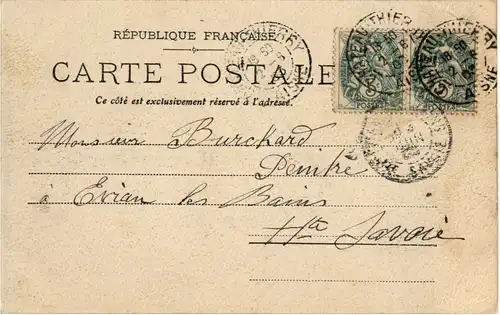 RÉPUBLIQUE FRANÇAISE
CARTE POSTALE
Ce côté est exclusivement réservé à l'adresse.
CHATEAU-THIERRY
AISNE
Monsieur Burckard
Peintre
à Evian les Bains
Hte Savoie